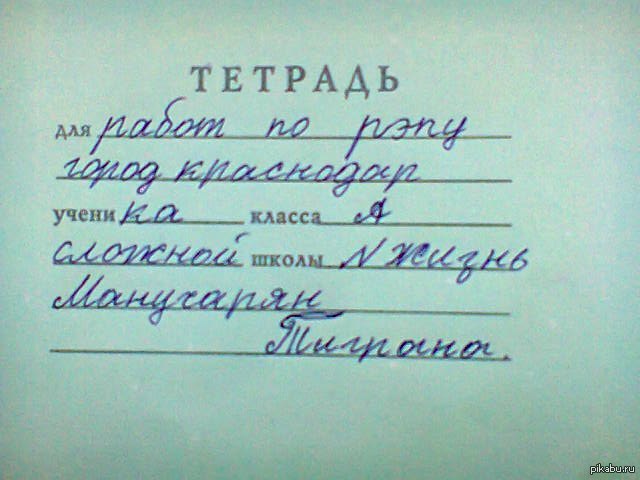 ТЕТРАДЬ
для работ по рэпу
город краснодар
ученика класса А
сложной школы N жизнь
Манучарян
Тиграна.
pikabu.ru